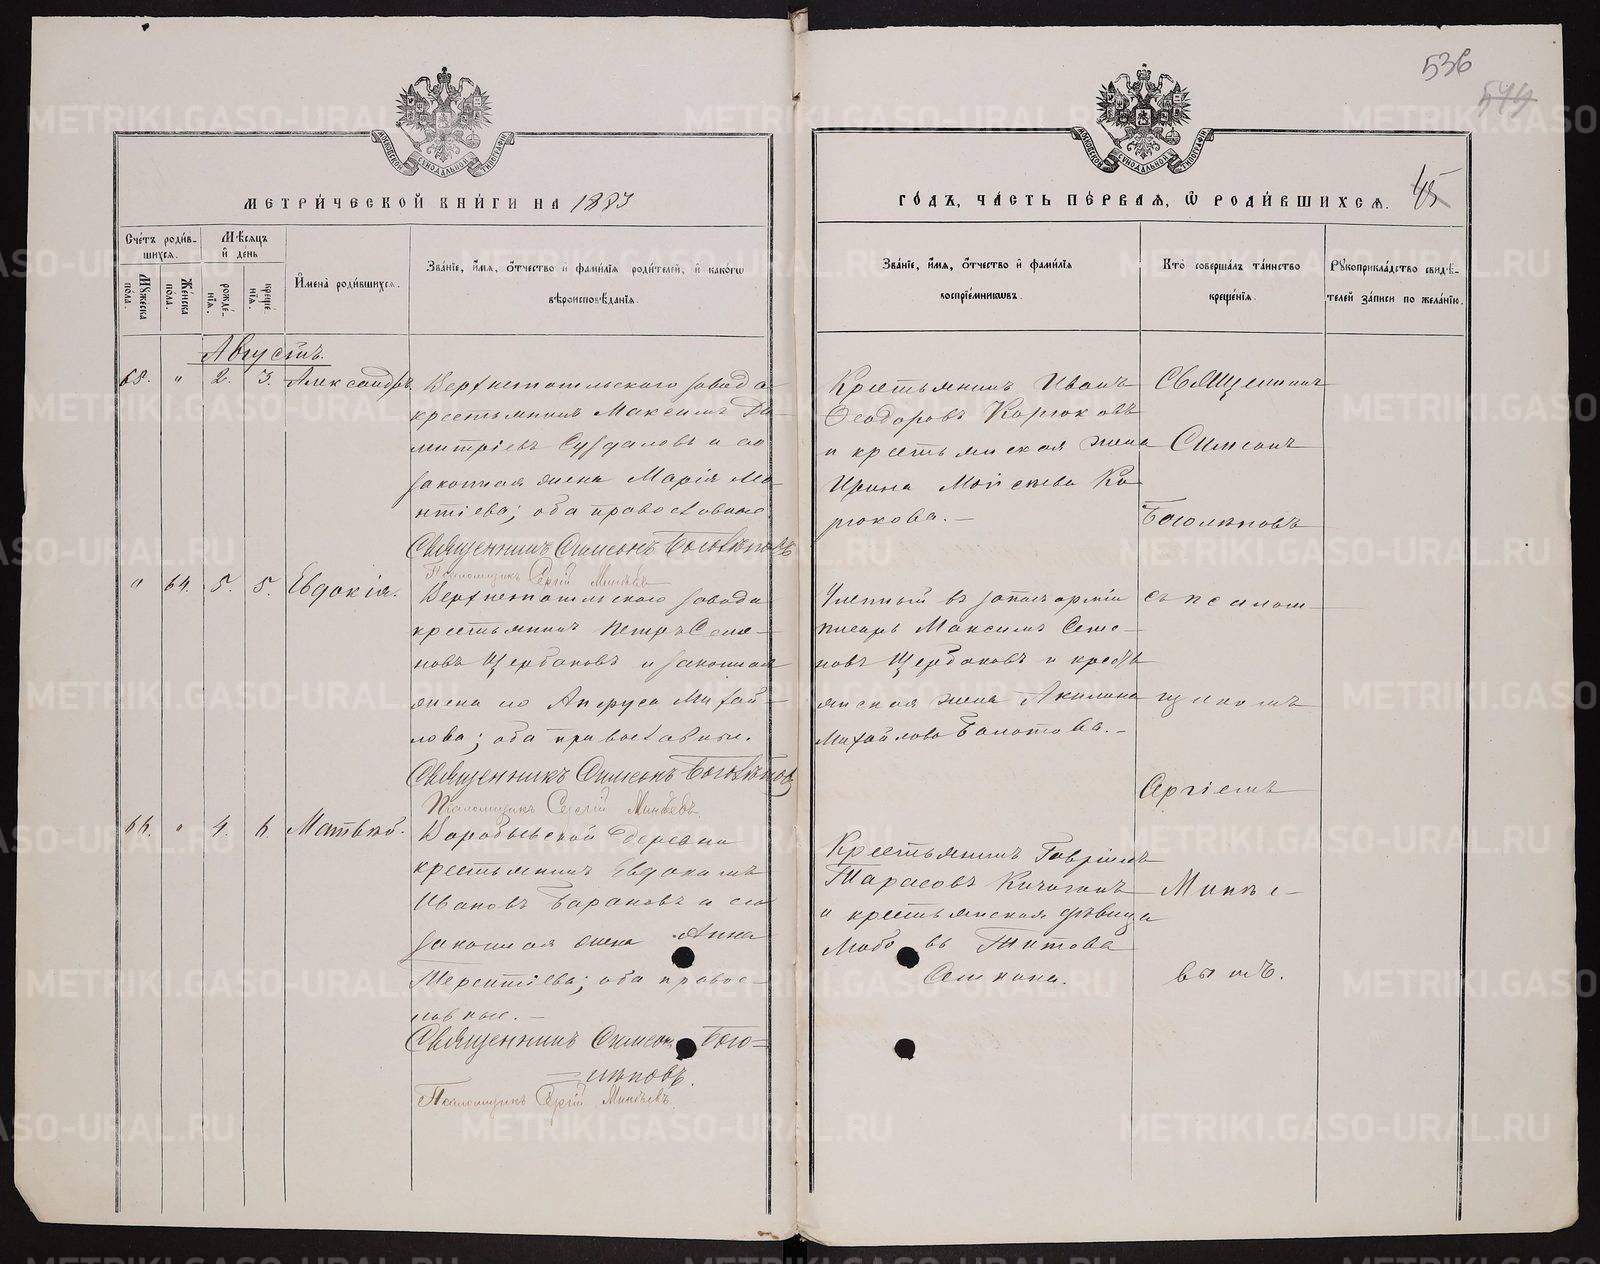 536
544
МЕТРИ́ЧЕСКОЙ КНИ́ГИ НА 1883
ГО́ДЪ, ЧА́СТЬ ПЕ́РВАЯ, Ѿ РОДИ́ВШИХСЯ.
45
Сче́тъ роди́вшихся.
Му́жеска по́ла.
Же́нска по́ла.
Мѣ́сяцъ и де́нь
рожде́нія.
креще́нія.
И҆мена̀ роди́вшихся.
Зва́нїе, и҆́мя, ѻ҆́тчество и҆ фами́лїя роди́телей, и҆ како́гѡ
вѣроисповѣ́данїя.
Зва́нїе, и҆́мя, ѻ҆́тчество и҆ фами́лїя
воспрїе́мниковъ.
Кто̀ соверша́лъ та́инство
креще́нїя.
Рꙋкоприкла́дство свидѣ́-
телей за́писи по жела́нїю.
Августъ.
68. " 2. 3. Александръ.
Верхнетагильскаго завода
крестьянинъ Максимъ Ди-
митріевъ Суздаловъ и его
законная жена Марія Ле-
онтіева; оба православные.
Священникъ Симеонъ Боголѣповъ
Псаломщикъ Сергій Минѣевъ
Крестьянинъ Иванъ
Ѳеодоровъ Корюковъ
и крестьянская жена
Ирина Моисеева Ко-
рюкова. -
Священникъ
Симеонъ
Боголѣповъ
" 64. 5. 5. Евдокія.
Верхнетагильскаго завода
крестьянинъ Петръ Семе-
новъ Щербаковъ и законная
жена его Михай-
лова; оба православные.
Священникъ Симеонъ Боголѣповъ
Псаломщикъ Сергій Минѣевъ
писарь Максимъ Семе-
новъ Щербаковъ и кресть-
янская жена Акилина
Михайлова Болотова. -
съ псалом-
щикомъ
Сергіемъ
4. 6. Матѳей.
Воробьевской деревни
крестьянинъ Евдокимъ
Ивановъ Барановъ и его
законная жена Анна
Терентіева; оба правос-
лавные. -
Священникъ Симеонъ Бого-
лѣповъ.
Псаломщикъ Сергій Минѣевъ
Крестьянинъ Гавріилъ
Тарасовъ Кичигинъ
и крестьянская дѣвица
Любовь Титова
Семкина.
Минѣе-
вымъ.
METRIKI.GASO-URAL.RU